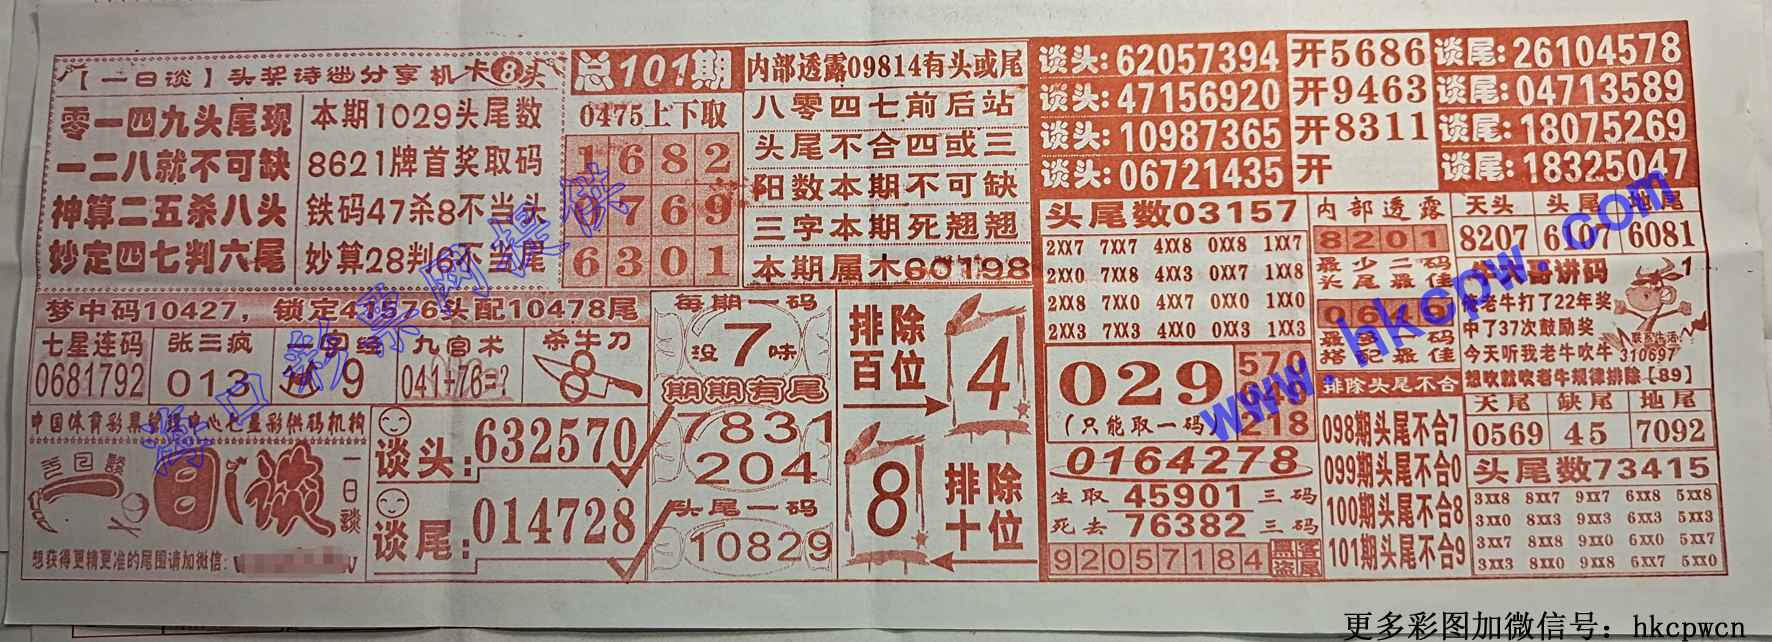 【一日谈】头奖诗谜分享机卡8头
零一四九头尾现
一二八就不可缺
神算二五杀八头
妙定四七判六尾
本期1029头尾数
8621牌首奖取码
铁码47杀8不当头
妙算28判6不当尾
总101期
0475上下取
1682
0769
6301
内部透露09814有头或尾
八零四七前后站
头尾不合四或三
阳数本期不可缺
三字本期死翘翘
本期属木60198
谈头:62057394
谈头:47156920
谈头:10987365
谈头:06721435
开5686
开9463
开8311
开
谈尾:26104578
谈尾:04713589
谈尾:18075269
谈尾:18325047
梦中码10427，锁定41576头配10478尾
七星连码
0681792
张三疯
013
一字经
9
九宫术
041+76=?
杀牛刀
中国体育彩票管理中心七星彩供码机构
一日谈
一日谈
想获得更精更准的尾围请加微信:
谈头:632570
谈尾:014728
每期一码
没7味
期期有尾
7831
204
头尾一码
10829
排除百位
4
8
排除十位
头尾数03157
2XX7 7XX7 4XX8 0XX8 1XX7
2XX0 7XX8 4XX3 0XX7 1XX8
2XX8 7XX0 4XX7 0XX0 1XX0
2XX3 7XX3 4XX0 0XX3 1XX3
029
(只能取一码)
570
218
0164278
生取45901三码
死去76382三码
92057184
黑客盗尾
内部透露
8201
最少二码
头尾最佳
0649
搭配最佳
排除头尾不合
098期头尾不合7
099期头尾不合0
100期头尾不合8
101期头尾不合9
天头 头尾 地尾
8207 6107 6081
讲码
老牛打了22年奖
中了37次鼓励奖
今天听我老牛吹牛
想吹就吹老牛规律排除【89】
1
联系生活:
310697
天尾 缺尾 地尾
0569 45 7092
头尾数73415
3XX8 8XX7 9XX7 6XX8 5XX8
3XX0 8XX3 9XX3 6XX3 5XX3
3XX7 8XX8 9XX0 6XX0 5XX7
3XX3 8XX0 9XX8 6XX7 5XX0
海口彩票网提供
www.hkcpw.com
更多彩图加微信号：hkcpwcn